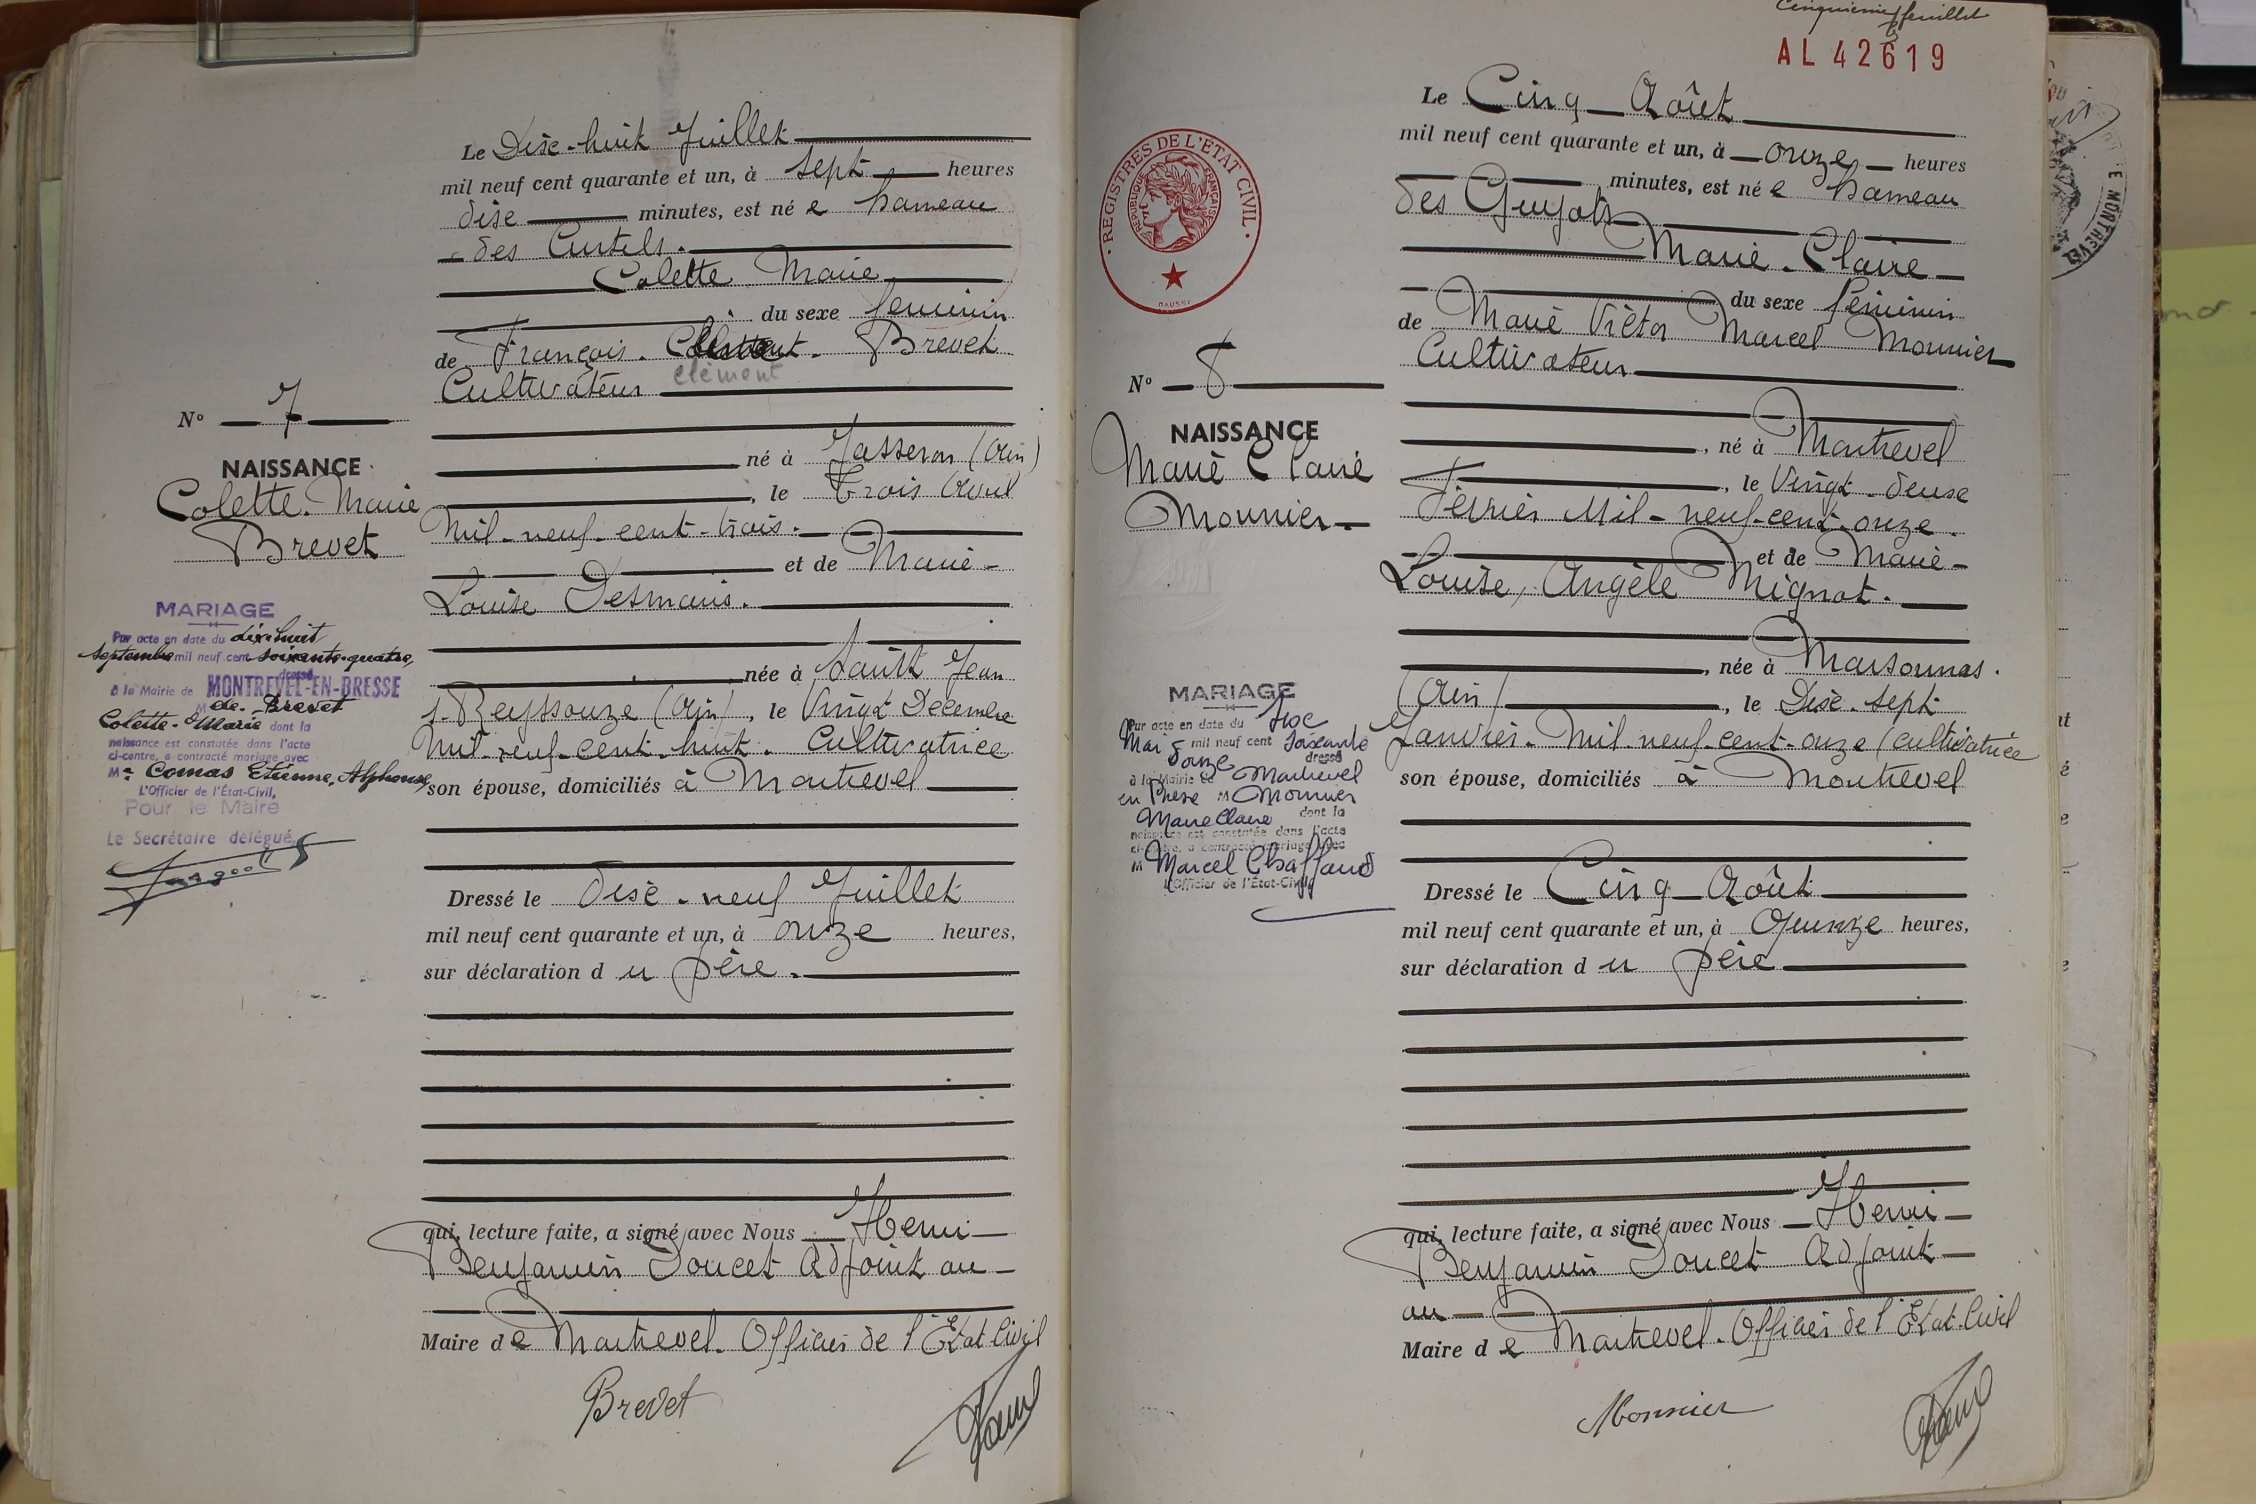 Le Dix-huit Juillet
mil neuf cent quarante et un, à sept heures
dix minutes, est né e hameau
des Curtels.
Colette Marie
du sexe féminin
de François Clément Brevet
clément
Cultivateur
né à Jasseron (Ain)
, le Trois Avril
Mil-neuf-cent-trois.
et de Marie-
Louise Desmaris.
née à Saint Jean
s. Reyssouze (Ain), le Vingt Décembre
Mil-neuf-cent-huit. Cultivatrice
son épouse, domiciliés à Montrevel
Dressé le dix-neuf Juillet
mil neuf cent quarante et un, à onze heures,
sur déclaration d u père.
qui, lecture faite, a signé avec Nous Henri
Benjamin Doucet Adjoint au
Maire d e Montrevel. Officier de l'Etat Civil
Brevet
N° 7
NAISSANCE
Colette. Marie
Brevet
MARIAGE
Par acte en date du dix-huit
septembre mil neuf cent soixante-quatre,
dressé
à la Mairie de MONTREVEL-EN-BRESSE
M de Brevet
Colette-Marie dont la
naissance est constatée dans l'acte
ci-contre, a contracté mariage avec
Mr Comas Etienne, Alphonse,
L'Officier de l'État-Civil,
Pour le Maire
Le Secrétaire délégué,
Cinquième feuillet
AL 42619
REGISTRES DE L'ETAT CIVIL
REPUBLIQUE FRANÇAISE
Le Cinq Août
mil neuf cent quarante et un, à onze heures
minutes, est né e hameau
des Guyots
Marie-Claire
du sexe féminin
de Marie Victor Marcel Monnier
Cultivateur
, né à Montrevel
, le Vingt-deux
Février Mil-neuf-cent-onze.
et de Marie-
Louise, Angèle Mignot.
, née à Marsonnas.
(Ain), le Dix-sept
Janvier Mil-neuf-cent-onze (cultivatrice
son épouse, domiciliés à Montrevel
Dressé le Cinq Août
mil neuf cent quarante et un, à Quinze heures,
sur déclaration d u père
qui, lecture faite, a signé avec Nous Henri
Benjamin Doucet Adjoint
au
Maire d e Montrevel. Officier de l'Etat Civil
Monnier
N° 8
NAISSANCE
Marie Claire
Monnier
MARIAGE
Par acte en date du six
Mai mil neuf cent soixante
douze dressé
à la Mairie de Montrevel
en Bresse M Monnier
Marie Claire dont la
naissance est constatée dans l'acte
ci-contre, a contracté mariage avec
M Marcel Chaffaud
L'Officier de l'État-Civil,